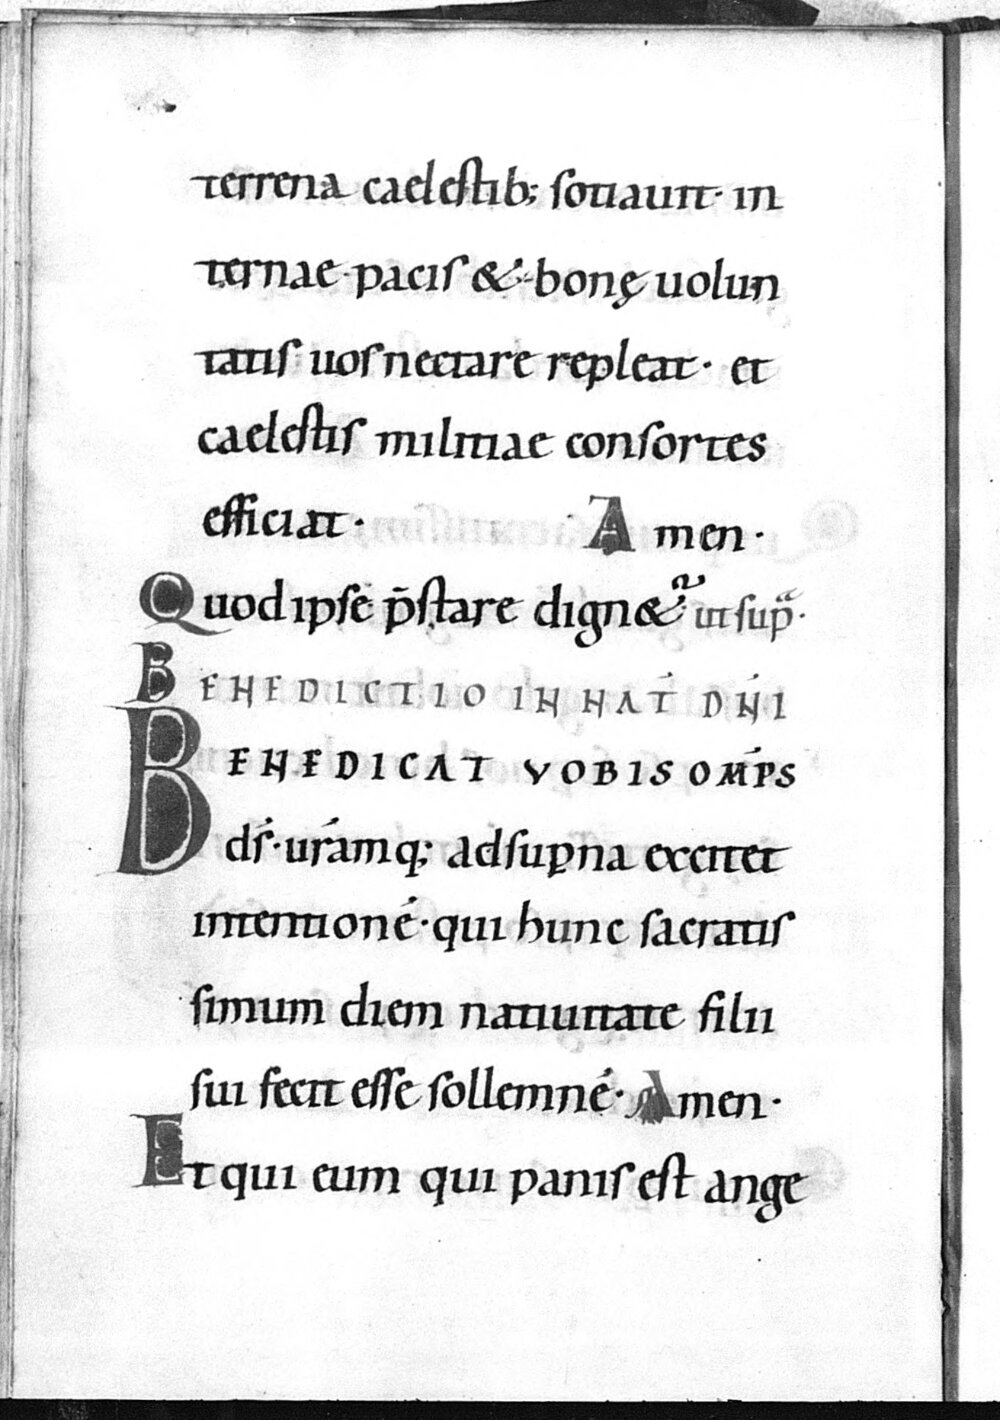 terrena caelestib; sotiauit· in
ternae· pacis &· bonę uolun
tatis uos nectare repleat· et
caelestis militiae consortes
efficiat· Amen·
Quod ipse p̄stare dign&ᷣ ut supᷓ·
BENEDICTIO IN NAT̄ DN̄I
BENEDICAT VOBIS OMP̄S
ds̄· ur̄amq; adsupna excitet
intentionē· qui hunc sacratis
simum diem natiuitate filii
sui fecit esse sollemnē· Amen·
Et qui eum qui panis est ange